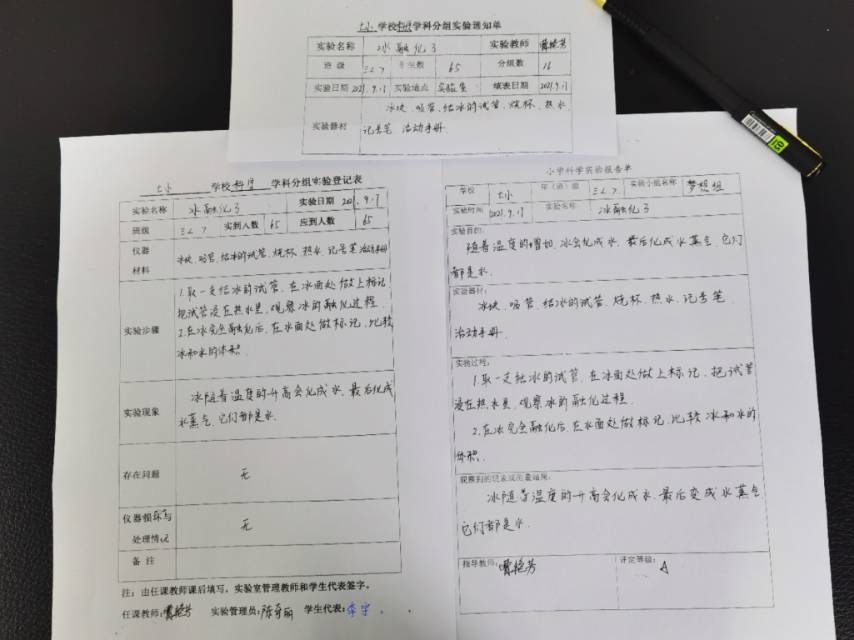 土小 学校科学学科分组实验通知单
实验名称 冰融化了 实验教师
班级 三2 学生数 65 分组数 16
实验日期 2021.9.17 实验地点 实验室 填表日期 2021.9.17
实验器材 冰块、吸管、结冰的试管、烧杯、热水
记号笔 活动手册
土小 学校科学 学科分组实验登记表
实验名称 冰融化了 实验日期 2021.9.17
班级 实到人数 65 应到人数 65
仪器材料 冰块、吸管、结冰的试管、烧杯、热水、记号笔活动手册
实验步骤 1.取一支结冰的试管、在冰面处做上标记、
把试管浸在热水里、观察冰的融化过程.
2.在冰完全融化后、在水面处做标记、比较
冰和水的体积.
实验现象 冰随着温度的升高会化成水、最后化成
水蒸气、它们都是水.
存在问题 无
仪器损坏与处理情况 无
备注
注:由任课教师课后填写,实验室管理教师和学生代表签字。
任课教师: 实验管理员: 学生代表:
小学科学实验报告单
学校 土小 年(班)级 实验小组名称 梦想组
实验时间 2021.9.17 实验名称 冰融化了
实验目的:
随着温度的增加、冰会化成水、最后化成水蒸气、它们
都是水.
实验器材:
冰块、吸管、结冰的试管、烧杯、热水、记号笔
活动手册.
实验过程:
1.取一支结冰的试管、在冰面处做上标记、把试管
浸在热水里、观察冰的融化过程.
2.在冰完全融化后、在水面处做标记、比较冰和水的
体积.
观察到的现象或测量结果:
冰随着温度的升高会化成水、最后变成水蒸气
它们都是水.
指导教师: 评定等级: A